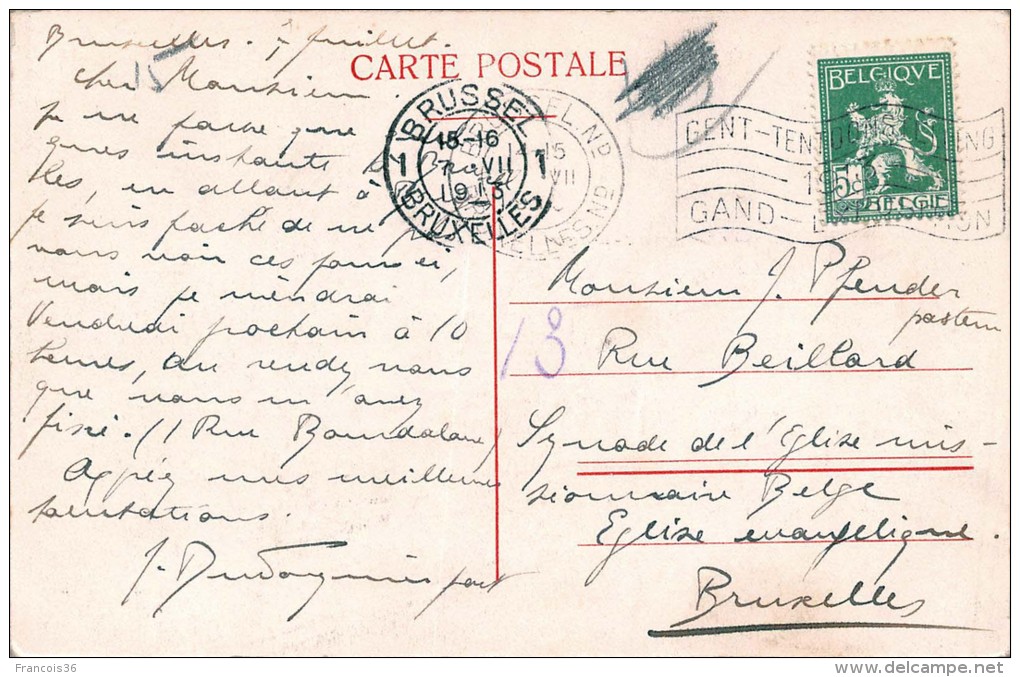 Bruxelles. 7 Juillet.
CARTE POSTALE
Cher Monsieur.
je ne passe que
ques instants
les, en allant à
je suis faché de ne
vous voir ces jours ci,
mais je viendrai
Vendredi prochain à 10
heures, au rendez vous
que vous m'avez
fixé. (1 Rue Bourdaloue)
Agréez mes meilleures
salutations.
BRUSSEL
15-16
7 VII
1913
BRUXELLES
1 1
GENT-TENTOONSTELLING
GAND-EXPOSITION
BELGIQUE
5
BELGIE
Monsieur J. Pfender
pasteur
Rue Beillard
Synode de l'Eglise mis-
sionnaire Belge
Eglise evangelique.
Bruxelles
13
Francois36
delcampe.net